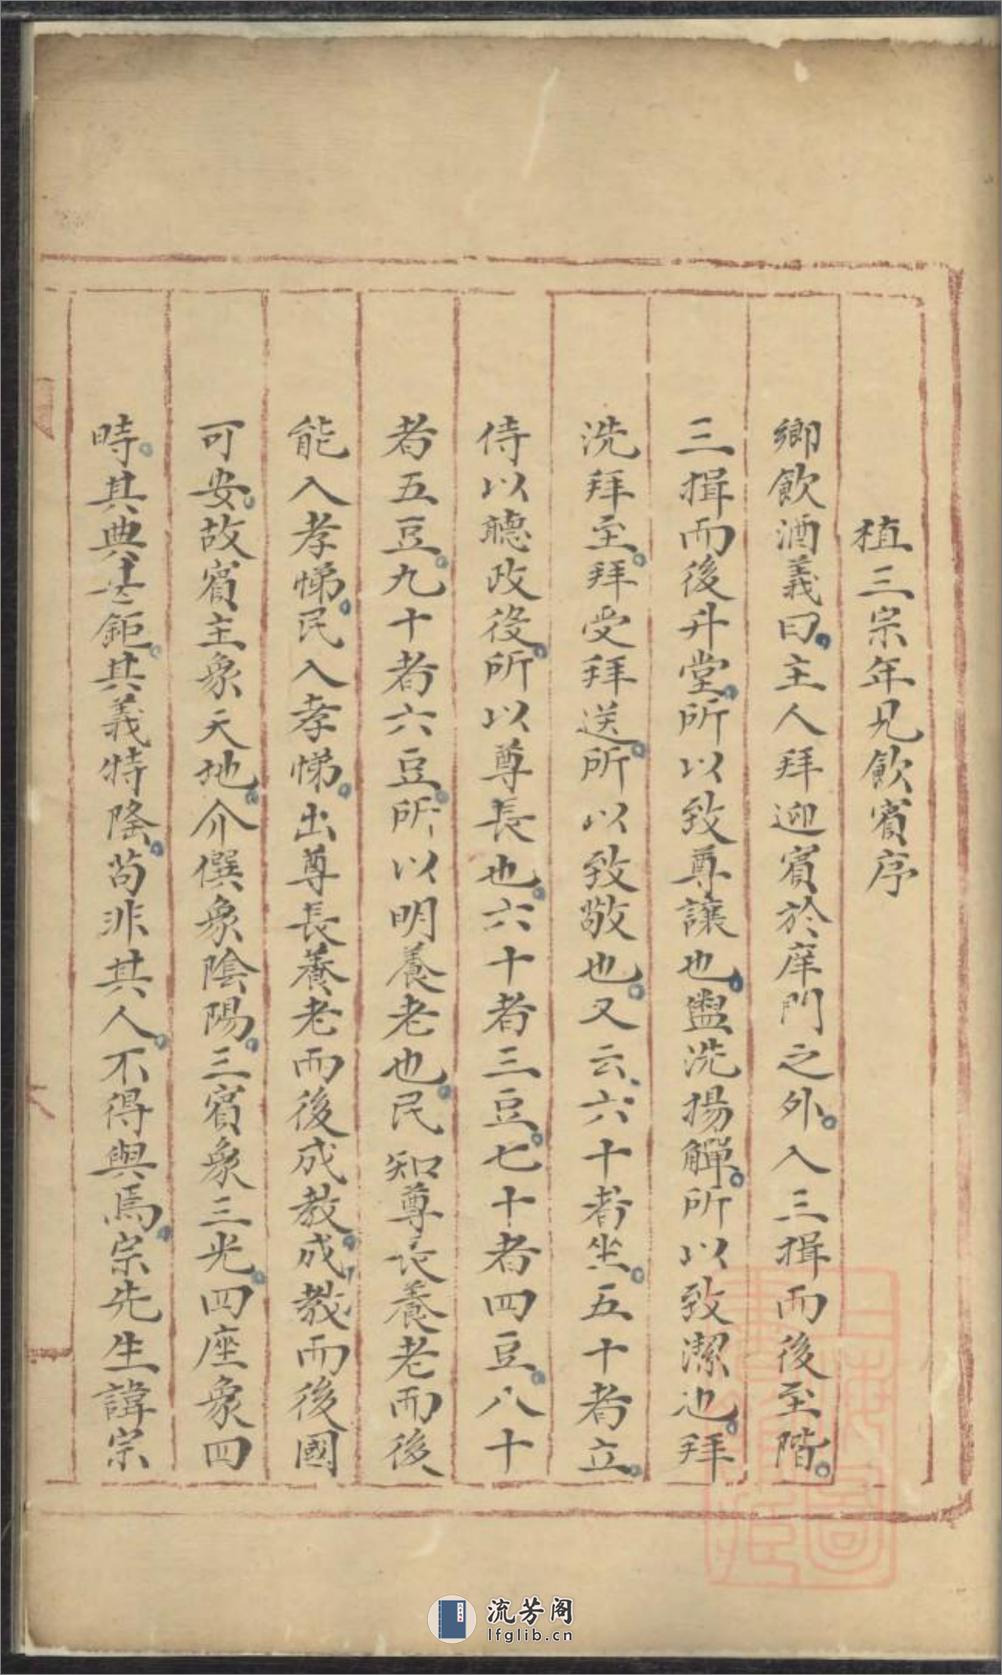 植三宗年兄飲賓序
鄉飲酒義曰主人拜迎賓於庠門之外入三揖而後至階
三揖而後升堂所以致尊讓也盥洗揚觶所以致潔也拜
洗拜至拜受拜送所以致敬也又云六十者坐五十者立
侍以聽政役所以尊長也六十者三豆七十者四豆八十
者五豆九十者六豆所以明養老也民知尊長養老而後
能入孝悌民入孝悌出尊長養老而後成教成教而後國
可安故賓主象天地介僎象陰陽三賓象三光四座象四
時其典甚鉅其義特隆苟非其人不得與焉宗先生諱宗
流芳阁
lfglib.cn